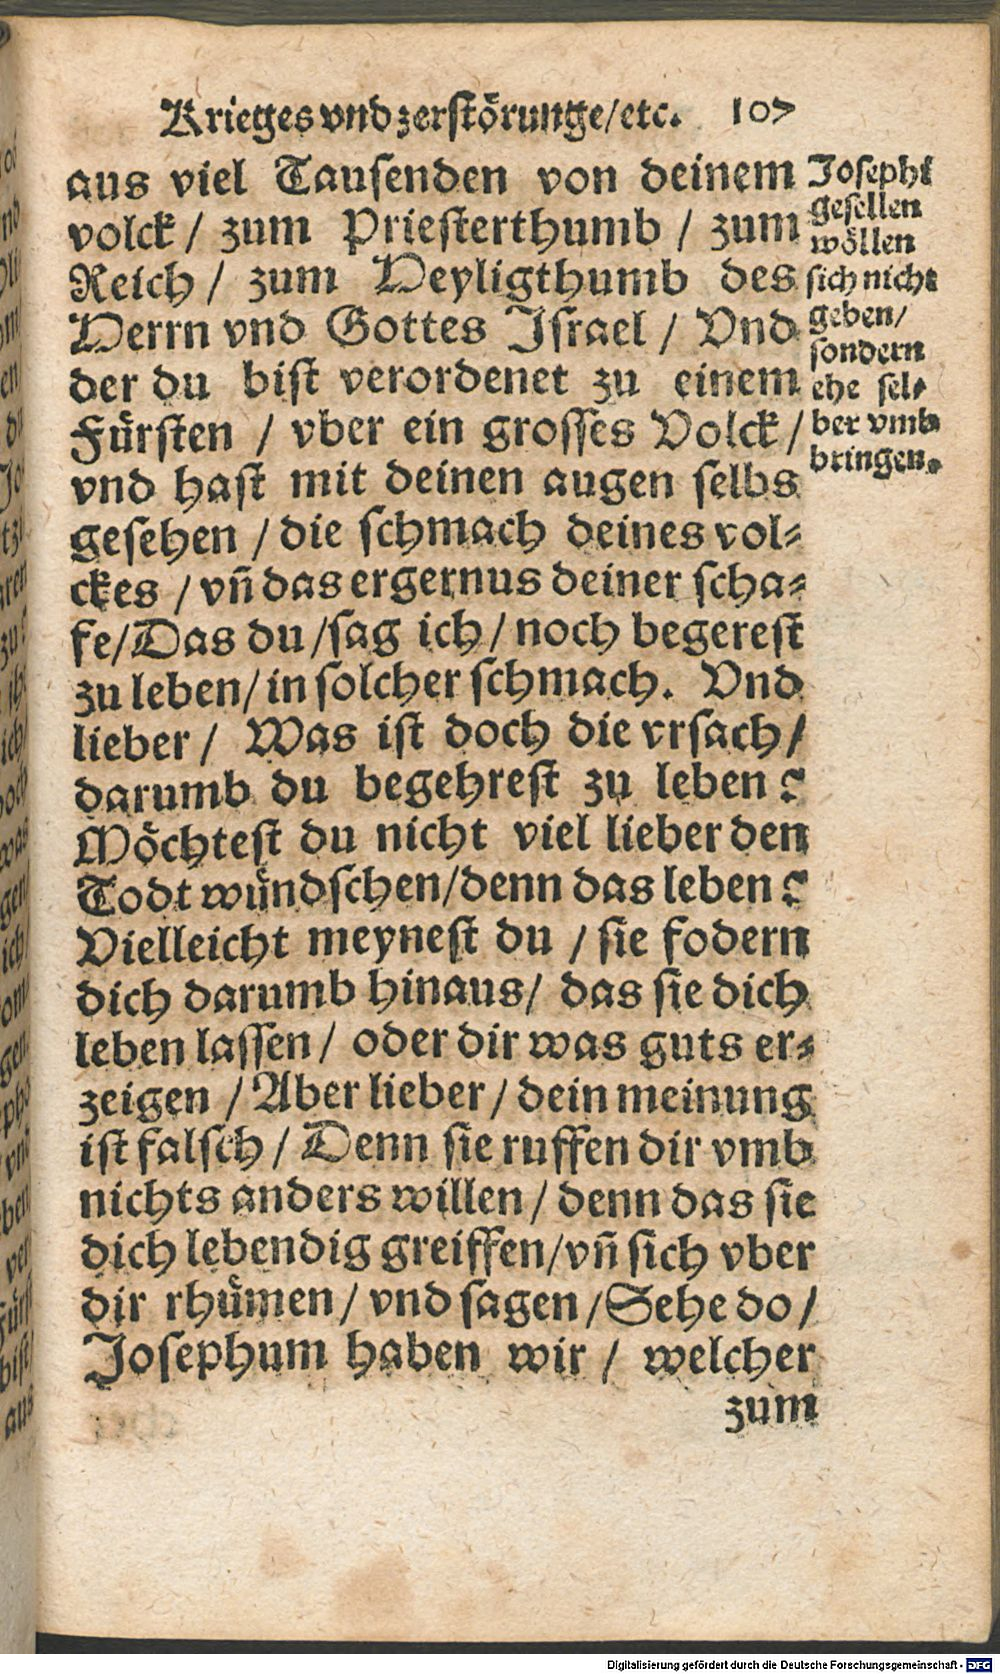 Krieges vnd zerstörunge/etc. 107
aus viel Tausenden von deinem
volck / zum Priesterthumb / zum
Reich / zum Heyligthumb des
Herrn vnd Gottes Israel / Vnd
der du bist verordenet zu einem
Fürsten / vber ein grosses Volck /
vnd hast mit deinen augen selbs
gesehen / die schmach deines vol-
ckes / vñ das ergernus deiner scha-
fe/Das du /sag ich / noch begerest
zu leben/ in solcher schmach. Vnd
lieber / Was ist doch die vrsach /
darumb du begehrest zu leben?
Möchtest du nicht viel lieber den
Todt wündschen/denn das leben?
Vielleicht meynest du / sie fodern
dich darumb hinaus/ das sie dich
leben lassen / oder dir was guts er-
zeigen / Aber lieber / dein meinung
ist falsch / Denn sie ruffen dir vmb
nichts anders willen / denn das sie
dich lebendig greiffen/vñ sich vber
dir rhümen / vnd sagen /Sehe do /
Josephum haben wir / welcher
zum
Josephi
gesellen
wöllen
sich nicht
geben/
sondern
ehe sel-
ber vmb
bringen.
Digitalisierung gefördert durch die Deutsche Forschungsgemeinschaft - DFG